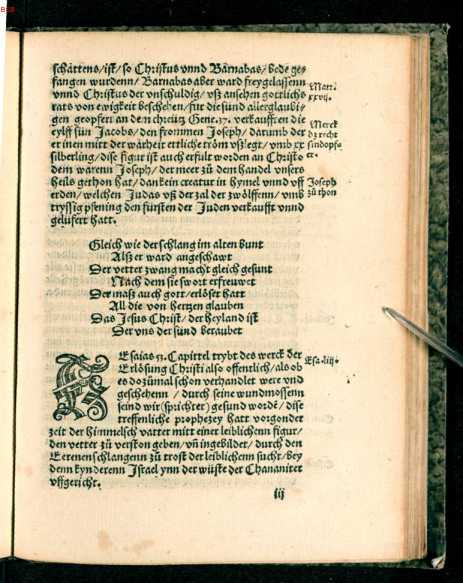 schattens/ist/so Christus vnnd Barnabas/bede ge-
fangen wurdenn/Barnabas aber ward freygelassenn
vnnd Christus der vnschuldig/vß ansehen gottlichs
rats von ewigkeit beschehen/für die sund aller glaubi-
gen geopfert an dem chreütz Gene.37. verkaufften die
eylff sün Jacobs/den frommen Joseph/darumb der
er inen mitt der warheit ettliche tröm vßlegt/vmb xx
silberling/dise figur ist auch erfult worden an Christo
dem warenn Joseph/der meer zů dem handel vnsers
heils gethon hat/dan kein creatur in hymel vnnd vff
erden/welchen Judas vß der zal der zwölffenn/vmb
tryssig pfening den fürsten der Juden verkaufft vnnd
gelüfert hatt.
Matt.
xxvij.
Merck
dz recht
sündopf-
er.
Joseph
zů thon
Gleich wie der schlang im alten bunt
Alß er ward angeschawt
Der vetter zwang macht gleich gesunt
Nach dem sie swort erfreuwet
Der maß auch gott/erlöset hatt
All die von hertzen glauben
Das Jesus Christ/der heyland ist
Der vns der sünd beraubet
Esaias 53. Capittel trybt des werck der
Erlösung Christi also offentlich/als ob
es dozůmal schon verhandlet were vnd
geschehenn/durch seine wundmossenn
seind wir (sprichter) gesund wordē/dise
treffenliche prophezey hatt vorgonder
zeit der himmelsch vatter mitt einer leiblichenn figur/
den vetter zů verston geben/vñ ingebildet/durch den
Eerenenschlangenn zů trost der leiblichenn sucht/bey
denn kynderenn Israel ynn der wüste der Chananiter
vffgericht.
Esa.liij.
iij